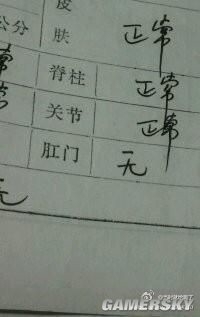 公分
皮
肤 正常
常 脊柱 正常
关节 正常
肛门 无
无
GAMERSKY